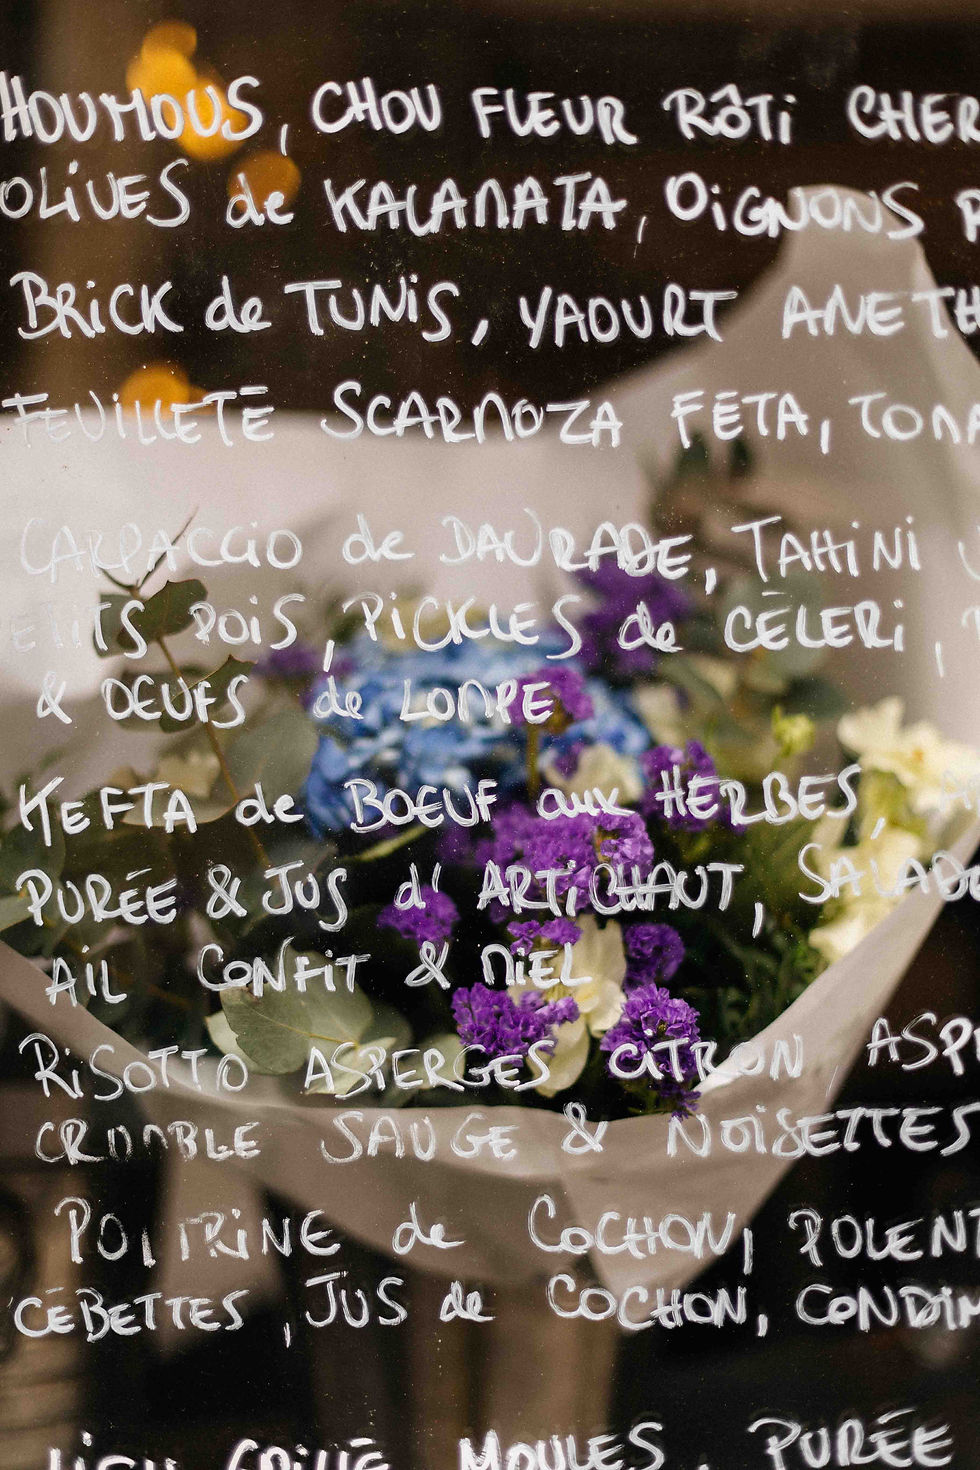 HOUMOUS, CHOU FLEUR RÔTi CHER
OLiVES de KALAMATA, OiGNONS
BRiCK de TUNiS, YAOURT ANETH
FEUiLLETÉ SCARMOZA FÉTA, TOMA
CARPACCiO de DAURADE, TAHiNi
ETiTS POiS, PiCKLES de CÉLERi,
& OEUFS de LOMPE
KEFTA de BOEUF aux HERBES,
PURÉE & JUS d'ARTiCHAUT, SALADE
AiL CONFiT & MiEL
RiSOTTO ASPERGES CiTRON ASPE
CRUMBLE SAUGE & NOiSETTES
POiTRiNE de COCHON, POLENT
CÉBETTES, JUS de COCHON, CONDiM
LiEU GRiLLÉ MOULES, PURÉE